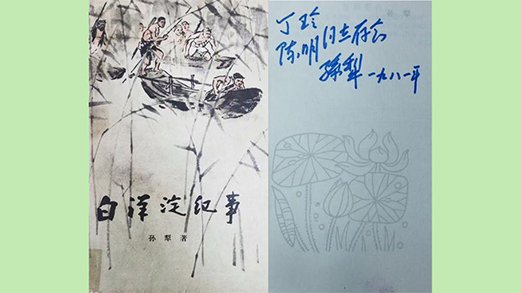 白洋淀纪事
孙犁 著
丁玲
陈明同志存念
孙犁 一九八一年